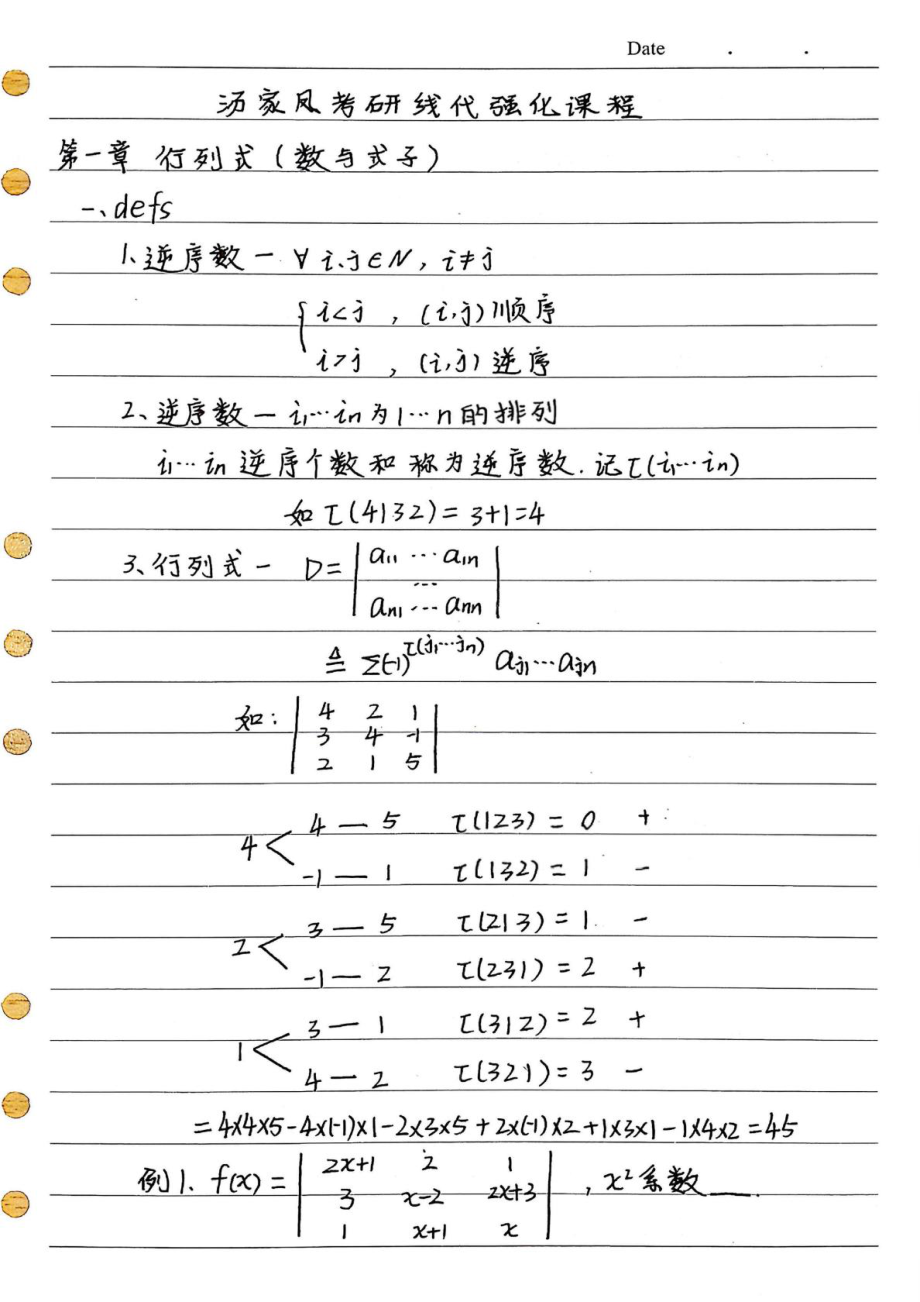 Date . .
汤家凤考研线代强化课程
第一章 行列式（数与式子）
一、defs
1、逆序数 — ∀ i、j∈N, i≠j
{ i<j , (i,j) 顺序
i>j , (i,j) 逆序
2、逆序数 — i₁…iₙ为1…n的排列
i₁…iₙ 逆序个数和 称为逆序数. 记τ(i₁…iₙ)
如 τ(4132) = 3+1=4
3、行列式 — D = | a₁₁ … a₁ₙ |
…
| aₙ₁ … aₙₙ |
≜ Σ(-1)^τ(j₁…jₙ) aⱼ₁…aⱼₙ
如: | 4 2 1 |
| 3 4 -1 |
| 2 1 5 |
4 < 4 — 5 τ(123) = 0 +
-1 — 1 τ(132) = 1 -
2 < 3 — 5 τ(213) = 1 -
-1 — 2 τ(231) = 2 +
1 < 3 — 1 τ(312) = 2 +
4 — 2 τ(321) = 3 -
= 4×4×5-4×(-1)×1-2×3×5+2×(-1)×2+1×3×1-1×4×2=45
例1. f(x) = | 2x+1 2 1 |
| 3 x-2 2x+3 | , x²系数___.
| 1 x+1 x |